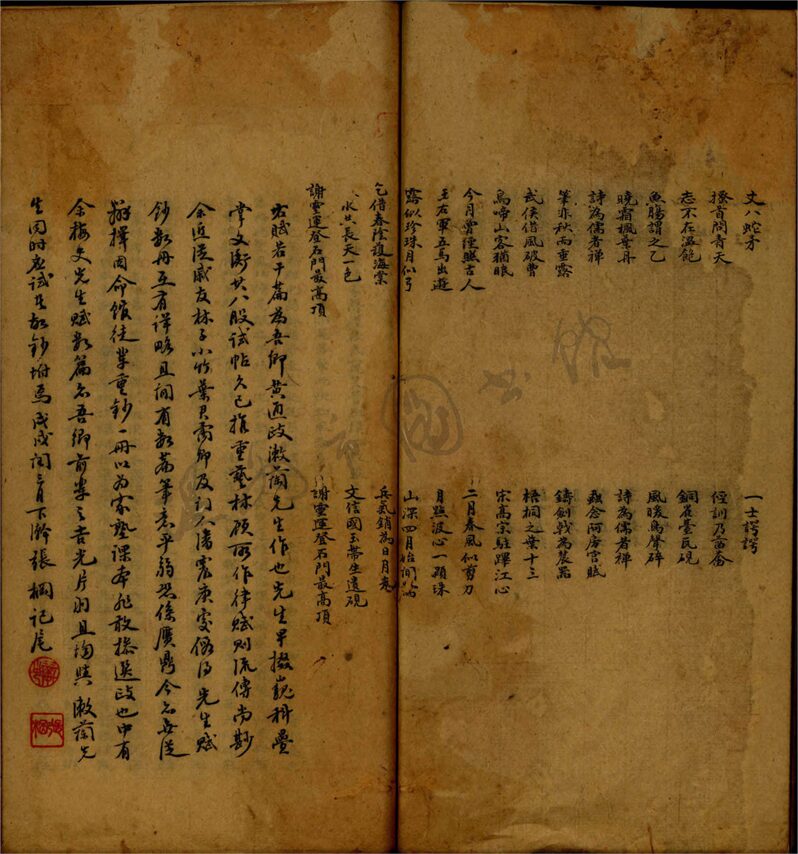 丈八蛇矛
一士諤諤
搔首問青天
經訓乃菑畬
志不在溫飽
銅雀臺瓦硯
魚腸謂之乙
風暖鳥聲碎
曉霜楓葉丹
詩為儒者禪
詩為儒者禪
念阿房宮賦
筆亦秋而垂露
鑄劍戟為農器
武侯借風破曹
梧桐之葉十三
烏啼山客猶眠
宋高宗駐蹕江心
今月曾經照古人
二月春風似剪刀
王右軍五馬出遊
月點波心一顆珠
露似珍珠月似弓
山深四月始聞鶯
乞借春陰護海棠
兵氣銷為日月光
水共長天一色
文信國玉帶生遺硯
謝靈運登石門最高頂
謝靈運登石門最高頂
右賦若干篇為吾鄉黃通政漱蘭先生作也先生早掇巍科疊
掌文衡其八股試帖久已推重藝林顧所作律賦則流傳尚尠
余近從戚友林子小竹葉君霽卿及門人潘震庚處假得先生賦
鈔數冊互有詳略且間有數篇筆意平弱恐係贗鼎今為
擇因命館徒輩重鈔一冊以為家塾課本非敢操選政也中有
余梅史先生賦數篇為吾鄉前輩之吉光片羽且均與漱蘭先
生同時應試者故鈔附焉戊戌閏三月下澣張棡記尾